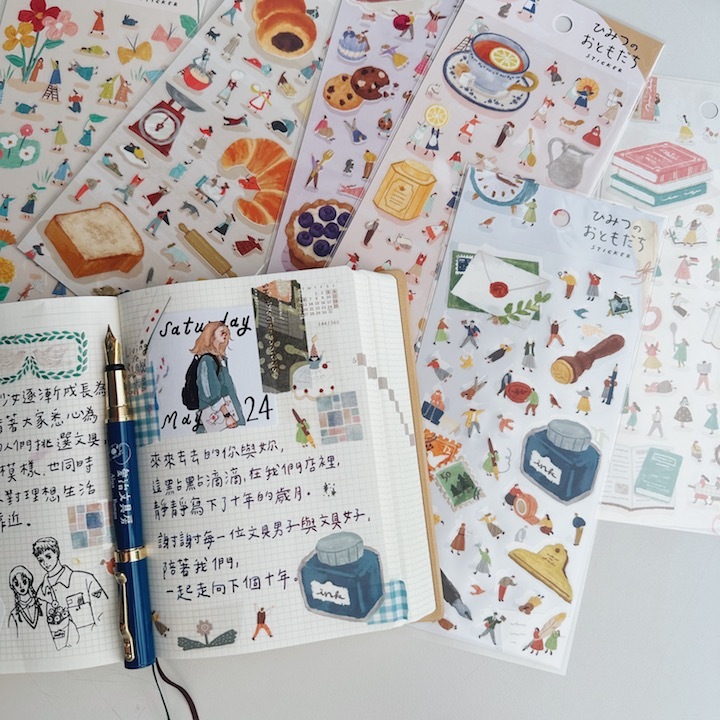 少女逐漸成長為
著大家悉心為
人們挑選文具,
模樣,也同時
對理想生活
靠近。
Saturday
May 24
來來去去的你與妳,
這點點滴滴,在我們店裡,
靜靜寫下了十年的歲月。
謝謝每一位文具男子與文具女子,
陪著我們,
一起走向下個十年。
ink
文具房
ひみつの
おともだち
STICKER
ひみつの
おともだち
STICKER
ink